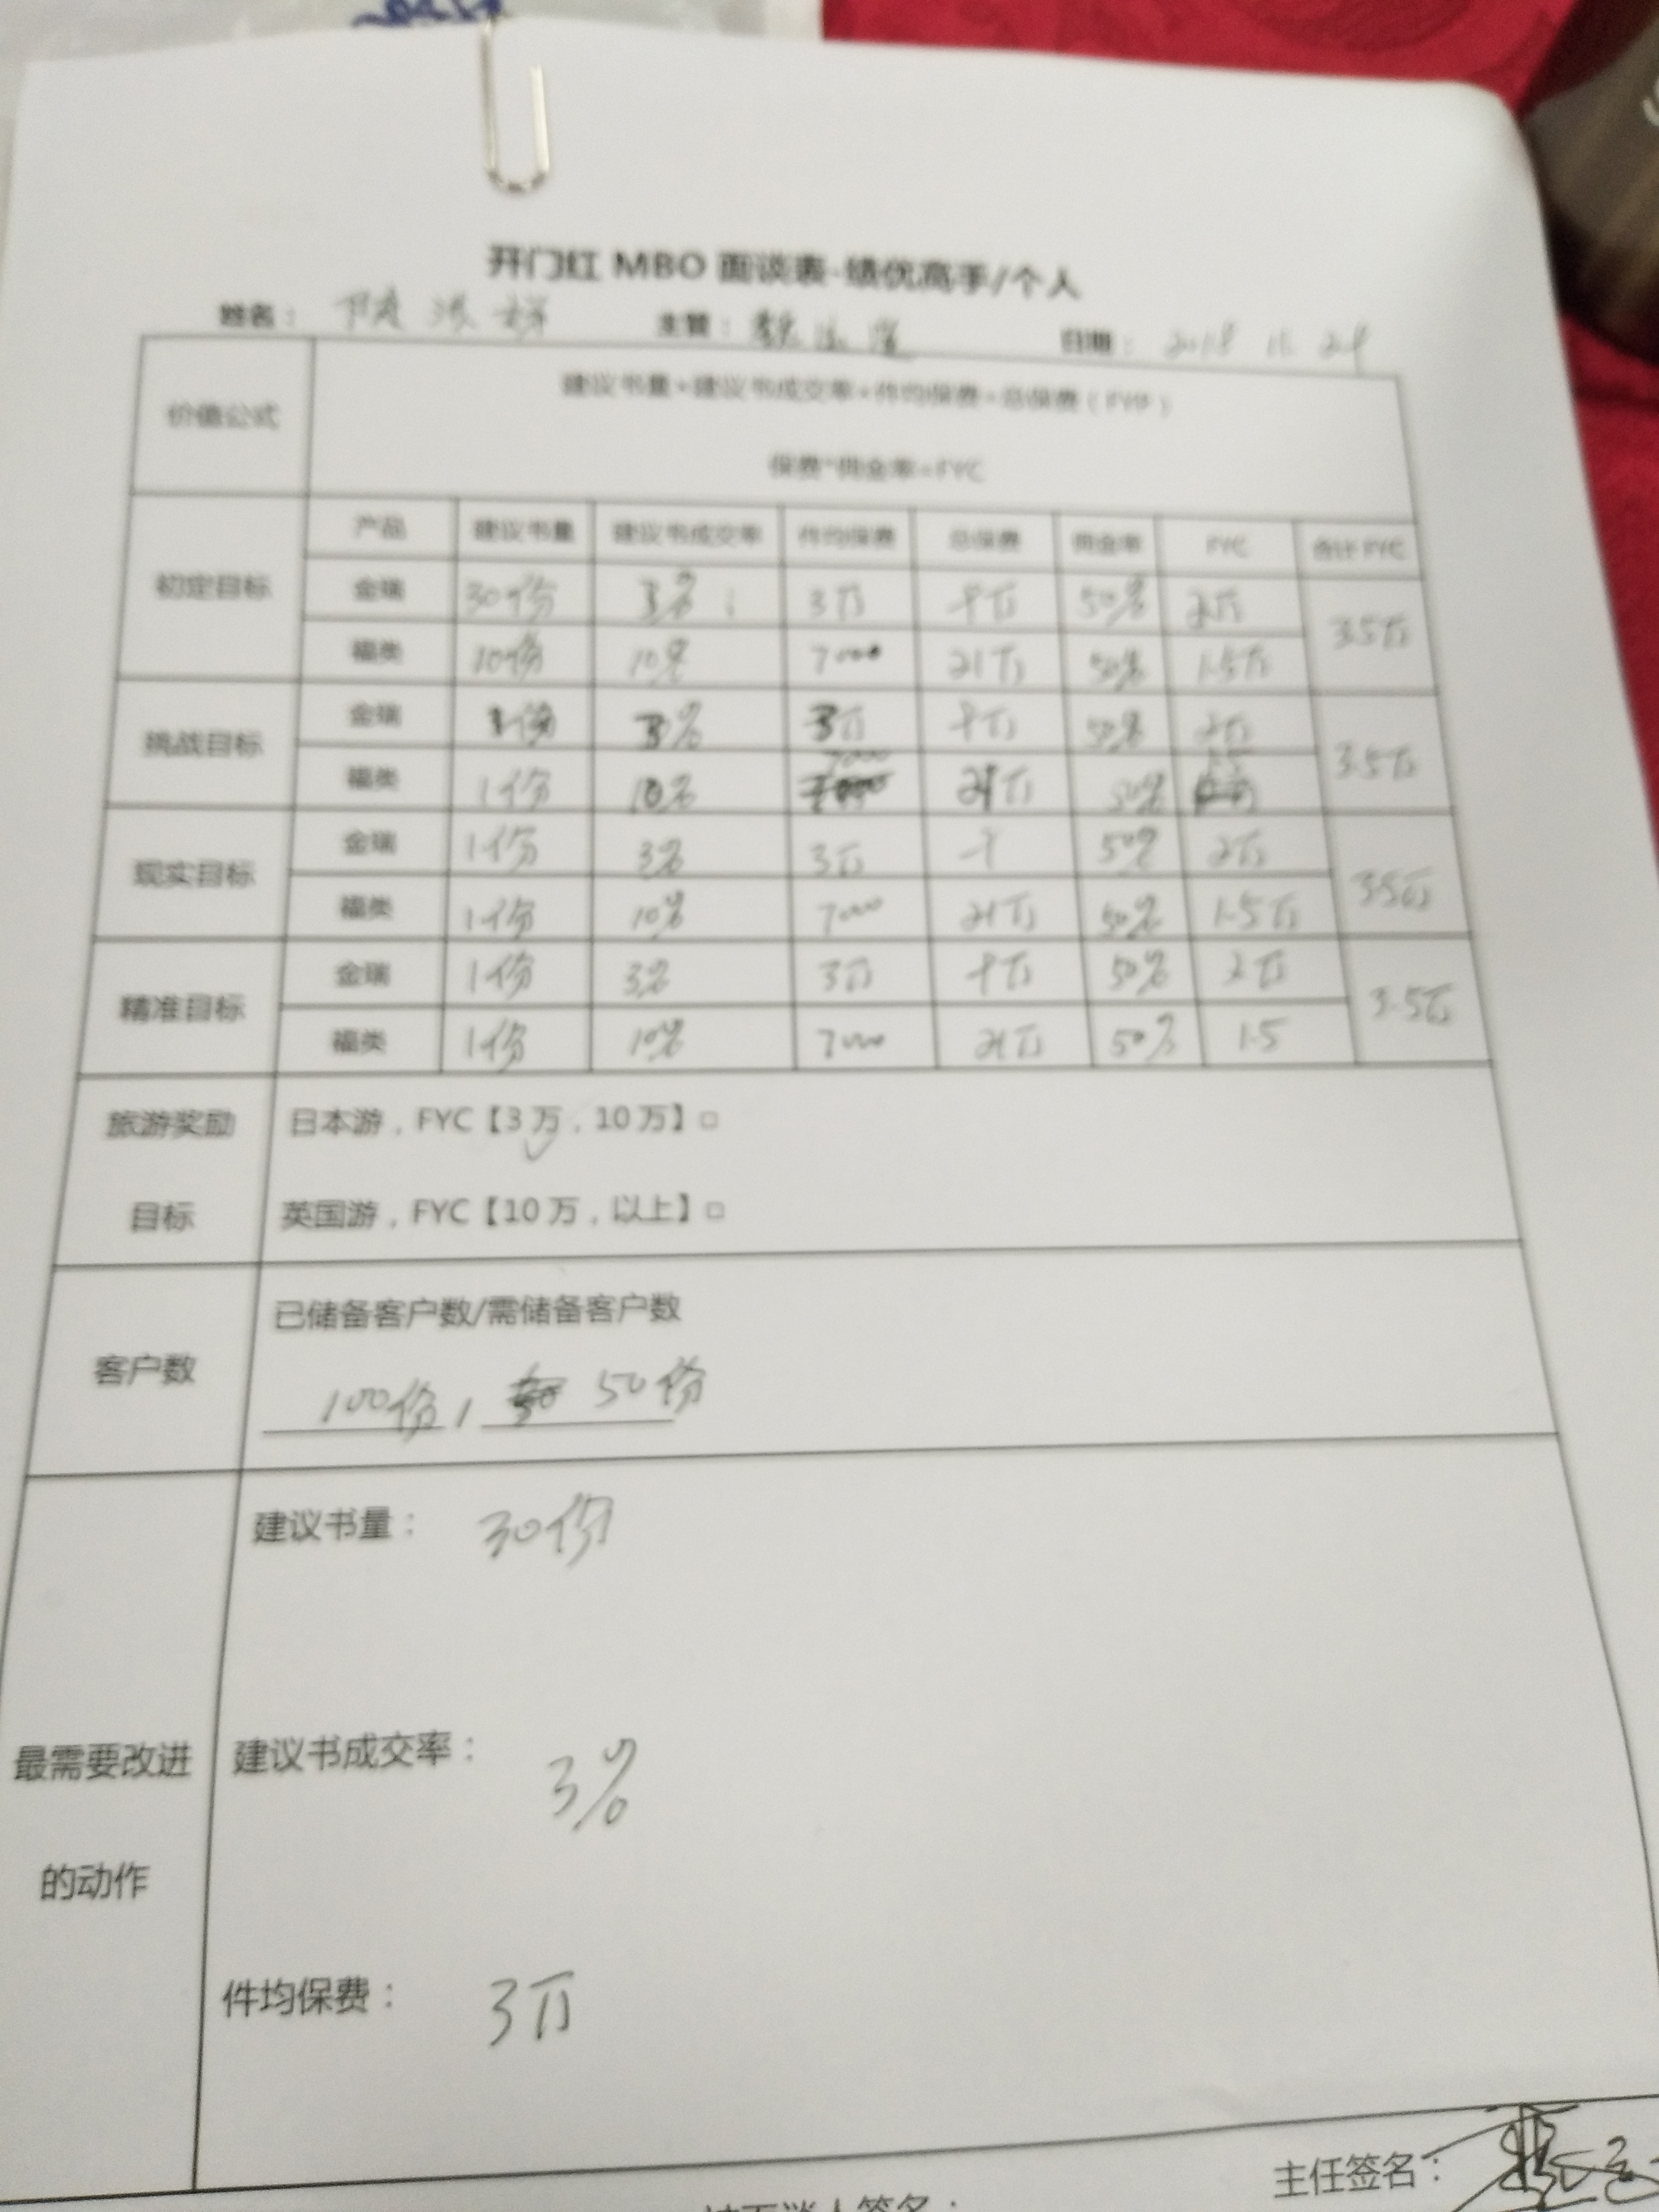 开门红 MBO 面谈表-绩优高手/个人
姓名： 主管： 日期： 2018 11 29
价值公式
建议书量*建议书成交率*件均保费=总保费（FYP）
保费*佣金率=FYC
产品 建议书量 建议书成交率 件均保费 总保费 佣金率 FYC 合计FYC
初定目标
金瑞 30份 3% 3万 50% 2万 3.5万
福类 10份 10% 7000 21万 50% 1.5万
挑战目标
金瑞 1份 3% 3万 50% 2万 3.5万
福类 1份 10% 7000 21万 50% 1.5
现实目标
金瑞 1份 3% 3万 50% 2万 3.5万
福类 1份 10% 7000 21万 50% 1.5万
精准目标
金瑞 1份 3% 3万 50% 2万 3.5万
福类 1份 10% 7000 21万 50% 1.5
旅游奖励
目标
日本游，FYC【3万，10万】□
英国游，FYC【10万，以上】□
客户数
已储备客户数/需储备客户数
100份 / 50份
最需要改进
的动作
建议书量： 30份
建议书成交率： 3%
件均保费： 3万
主任签名：
被面谈人签名：